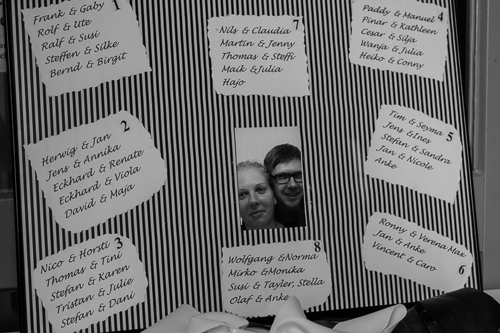 Frank & Gaby 1
Rolf & Ute
Ralf & Susi
Steffen & Silke
Bernd & Birgit
Nils & Claudia 7
Martin & Jenny
Thomas & Steffi
Maik & Julia
Hajo
Paddy & Manuel 4
Pinar & Kathleen
Cesar & Silja
Wanja & Julia
Heiko & Conny
Herwig & Jan 2
Jens & Annika
Eckhard & Renate
Eckhard & Viola
David & Maja
Tim & Seyma 5
Jens & Ines
Stefan & Sandra
Jan & Nicole
Anke
Nico & Horsti 3
Thomas & Tini
Stefan & Karen
Tristan & Julie
Stefan & Dani
Wolfgang & Norma 8
Mirko & Monika
Susi & Tayler, Stella
Olaf & Anke
Ronny & Verena Max
Jan & Anke
Vincent & Caro 6